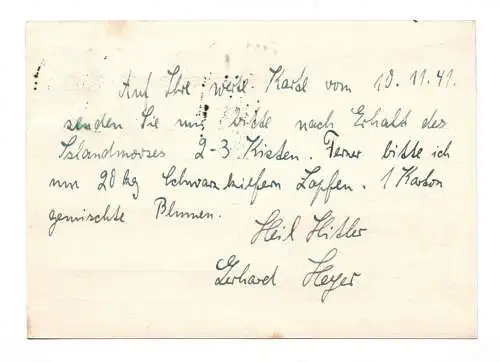 Auf Ihre werte Karte vom 10.11.41.
senden Sie mir bitte nach Erhalt des
Islandmooses 2-3 Kisten. Ferner bitte ich
um 20 kg Schwarzkiefern Zapfen. 1 Karton
gemischte Blumen.
Heil Hitler
Gerhard Heyer